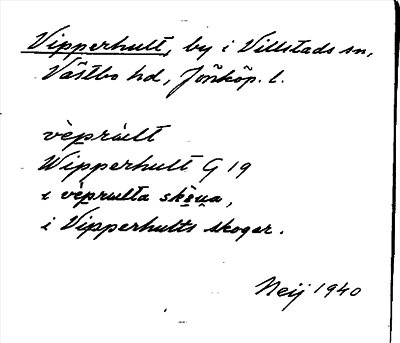 Vipperhult, by i Villstads sn,
Västbo hd, Jönköp. l.
vèprùlt
Wipperhult G 19
i vèprulta skoua,
i Vipperhults skogar.
Neij 1940